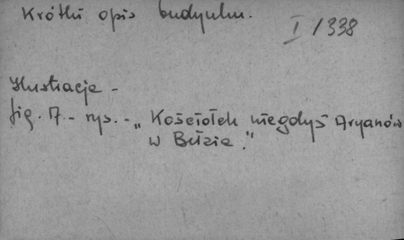 Krótki opis budynku.
I/338
Ilustracje -
fig. 7 - rys. - „Kościołek niegdyś Aryanów
w Bełzie."